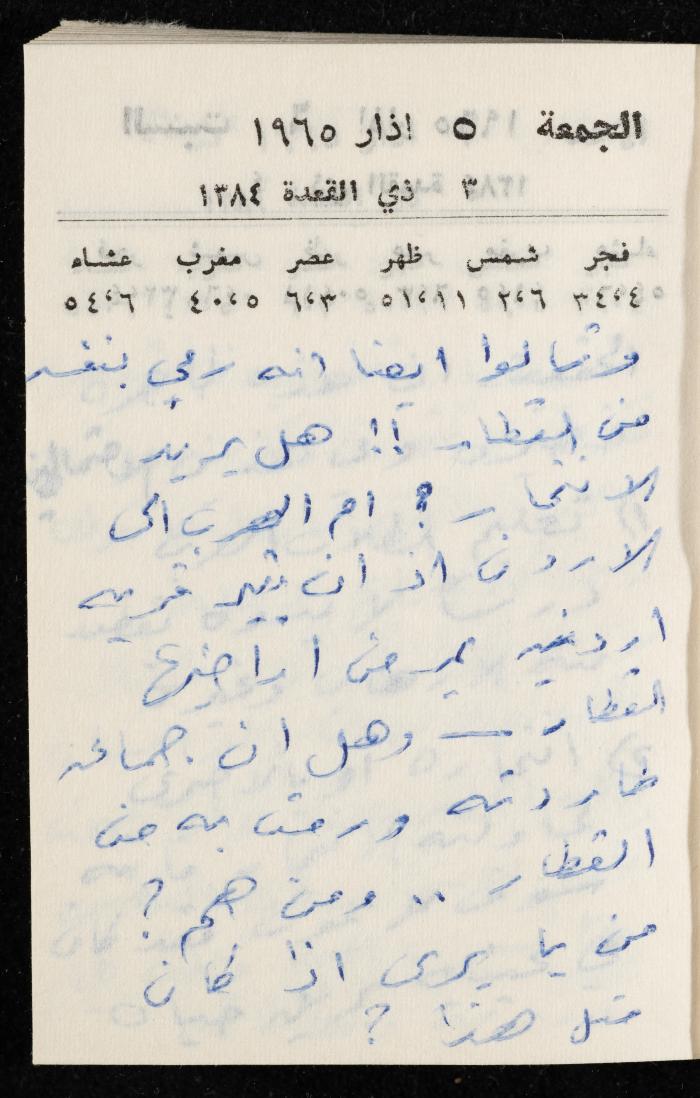 الجمعة ٥ اذار ١٩٦٥
٣ ذي القعدة ١٣٨٤
فجر شمس ظهر عصر مغرب عشاء
٣٤،٤ ٢،٦ ٥١،١١ ٦،٣ ٤٠،٥ ٥٤،٦
وقالوا ايضا انه رمي بنفسه
من القطار !! هل يريد
الانتحار ؟ ام الهرب الى
الاردن اذ ان بتير قريه
اردنيه يمر من اراضيها
القطار — وهل ان جماعه
طاردته ورمت به من
القطار .. ومن هم ؟
من يا يرى اذا كان
مثل هذا ؟